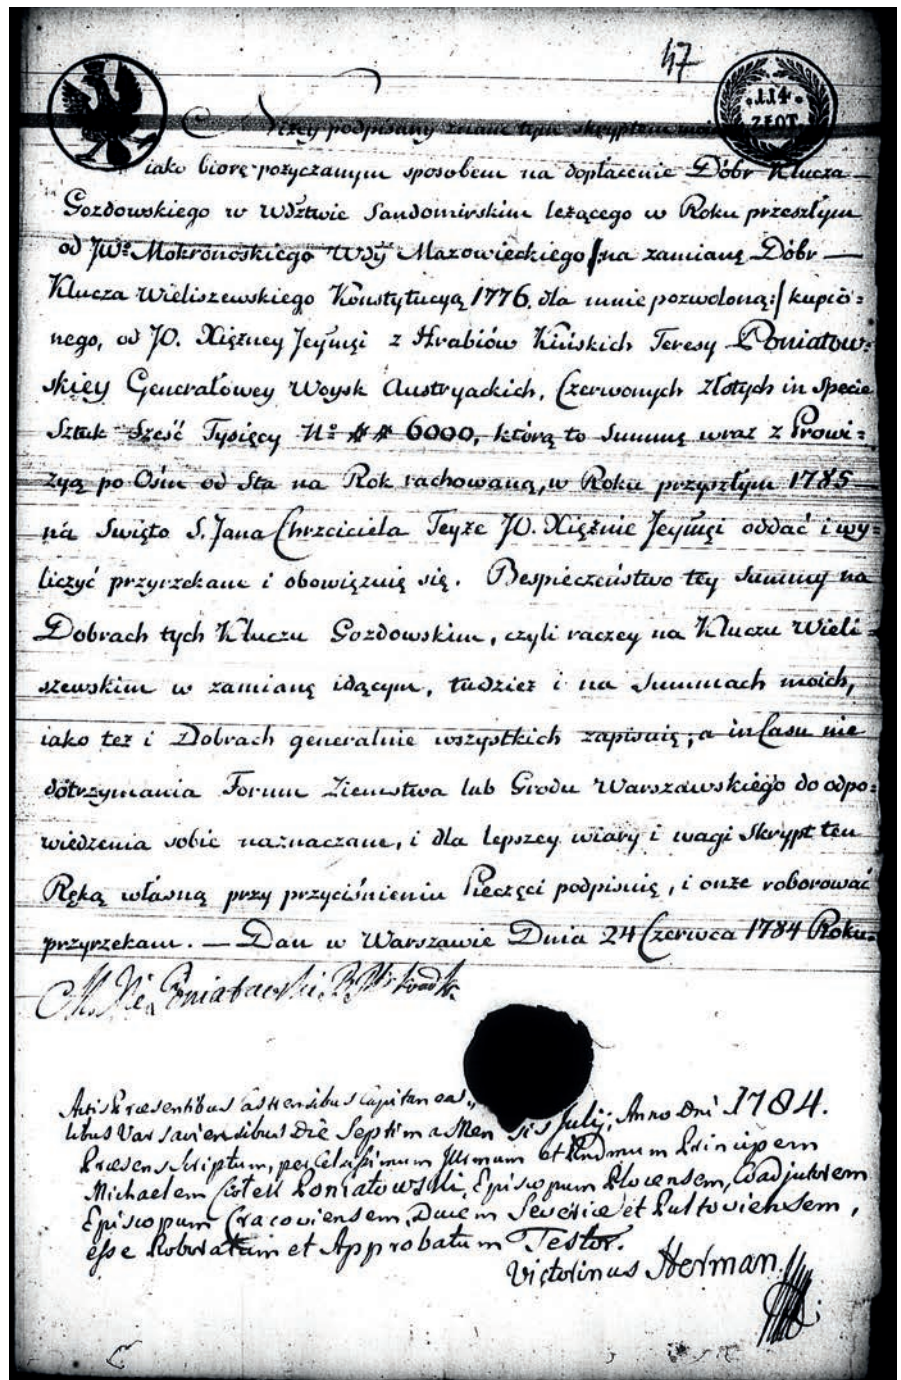 47
114
ZŁOT.
Niżey podpisany znam tym skryptem moim
iako biorę pożyczanym sposobem na dopłacenie Dóbr Klucza
Gozdowskiego w Wdztwie Sandomirskim leżącego w Roku przeszłym
od JWº Mokronoskiego Wdy Mazowieckiego /:na zamianę Dóbr —
Klucza Wieliszewskiego Konstytucyą 1776. dla mnie pozwoloną:/ kupio=
nego, od JO. Xiężney Jeymęi z Hrabiów Kińskich Teresy Poniatow=
skiey Generałowey Woysk Austryackich, Czerwonych złotych in specie
Sztuk Sześć Tysięcy Nº ## 6000, którą to Summę wraz z Prowi=
zyą po Ośm od Sta na Rok rachowaną, w Roku przyszłym 1785
na Swięto S. Jana Chrzciciela Teyże JO. Xiężnie Jeymęi oddać i wy=
liczyć przyrzekam i obowięzuię się. Bespieczeństwo tey Summy na
Dobrach tych Kluczu Gozdowskim, czyli raczey na Kluczu Wieli=
szewskim w zamianę idącym, tudzież i na Summach moich,
iako też i Dobrach generalnie wszystkich zapisuię, a in Casu nie
dotrzymania Forum Ziemstwa lub Grodu Warszawskiego do odpo=
wiedzenia sobie naznaczam, i dla lepszey wiary i wagi Skrypt ten
Ręką własną przy przyciśnieniu Pieczęci podpisuię, i onże roborować
przyrzekam. — Dan w Warszawie Dnia 24 Czerwca 1784 Roku.
Poniatowski
Actis Præsentibus Castrensibus Capitanea„
libus Varsaviensibus Die Septima Mensis Julij, Anno Dni 1784.
Præsens Scriptum, per Celsissimum Illrmum et Rndmum Principem
Michaelem Ciołek Poniatowski, Episcopum Plocensem, Coadjutorem
Episcopum Cracoviensem, Ducem Severiæ et Pultoviensem,
esse Roboratum et Approbatum Testor.
Victorinus Herman